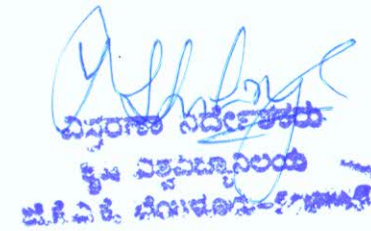 ವಿಸ್ತರಣಾ ನಿರ್ದೇಶಕರು
ಕೃಷಿ ವಿಶ್ವವಿದ್ಯಾನಿಲಯ
ಜಿ.ಕೆ.ವಿ.ಕೆ. ಬೆಂಗಳೂರು-